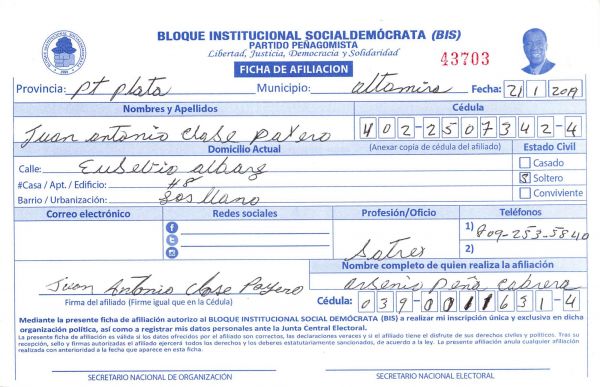 BLOQUE INSTITUCIONAL SOCIALDEMÓCRATA (BIS)
PARTIDO PEÑAGOMISTA
Libertad, Justicia, Democracia y Solidaridad
43703
FICHA DE AFILIACION
Provincia: Pt plata Municipio: altamira Fecha: 21/1/2019
Nombres y Apellidos Cédula
Juan antonio Clase Payero 402-2507342-4
Domicilio Actual (Anexar copia de cédula del afiliado) Estado Civil
Calle: Eusebio Casado
#Casa / Apt. / Edificio: #8 Soltero
Barrio / Urbanización: los llano Conviviente
Correo electrónico Redes sociales Profesión/Oficio Teléfonos
1) 809-253-5840
2)
Sastre
Nombre completo de quien realiza la afiliación
Juan Antonio Clase Payero arsenio peña cabrera
Firma del afiliado (Firme igual que en la Cédula) Cédula: 039-0011631-4
Mediante la presente ficha de afiliación autorizo al BLOQUE INSTITUCIONAL SOCIAL DEMÓCRATA (BIS) a realizar mi inscripción única y exclusiva en dicha
organización política, así como a registrar mis datos personales ante la Junta Central Electoral.
La presente ficha de afiliación es válida si los datos ofrecidos por el afiliado son correctos, las declaraciones veraces y si el afiliado tiene el disfrute de sus derechos civiles y políticos. Tras su
recepción, sello y firmas autorizadas el afiliado ejercerá todos los derechos y los deberes estatutariamente sancionados, de acuerdo a la ley. La presente afiliación anula cualquier afiliación
realizada con anterioridad a la fecha que aparece en esta ficha.
SECRETARIO NACIONAL DE ORGANIZACIÓN SECRETARIO NACIONAL ELECTORAL